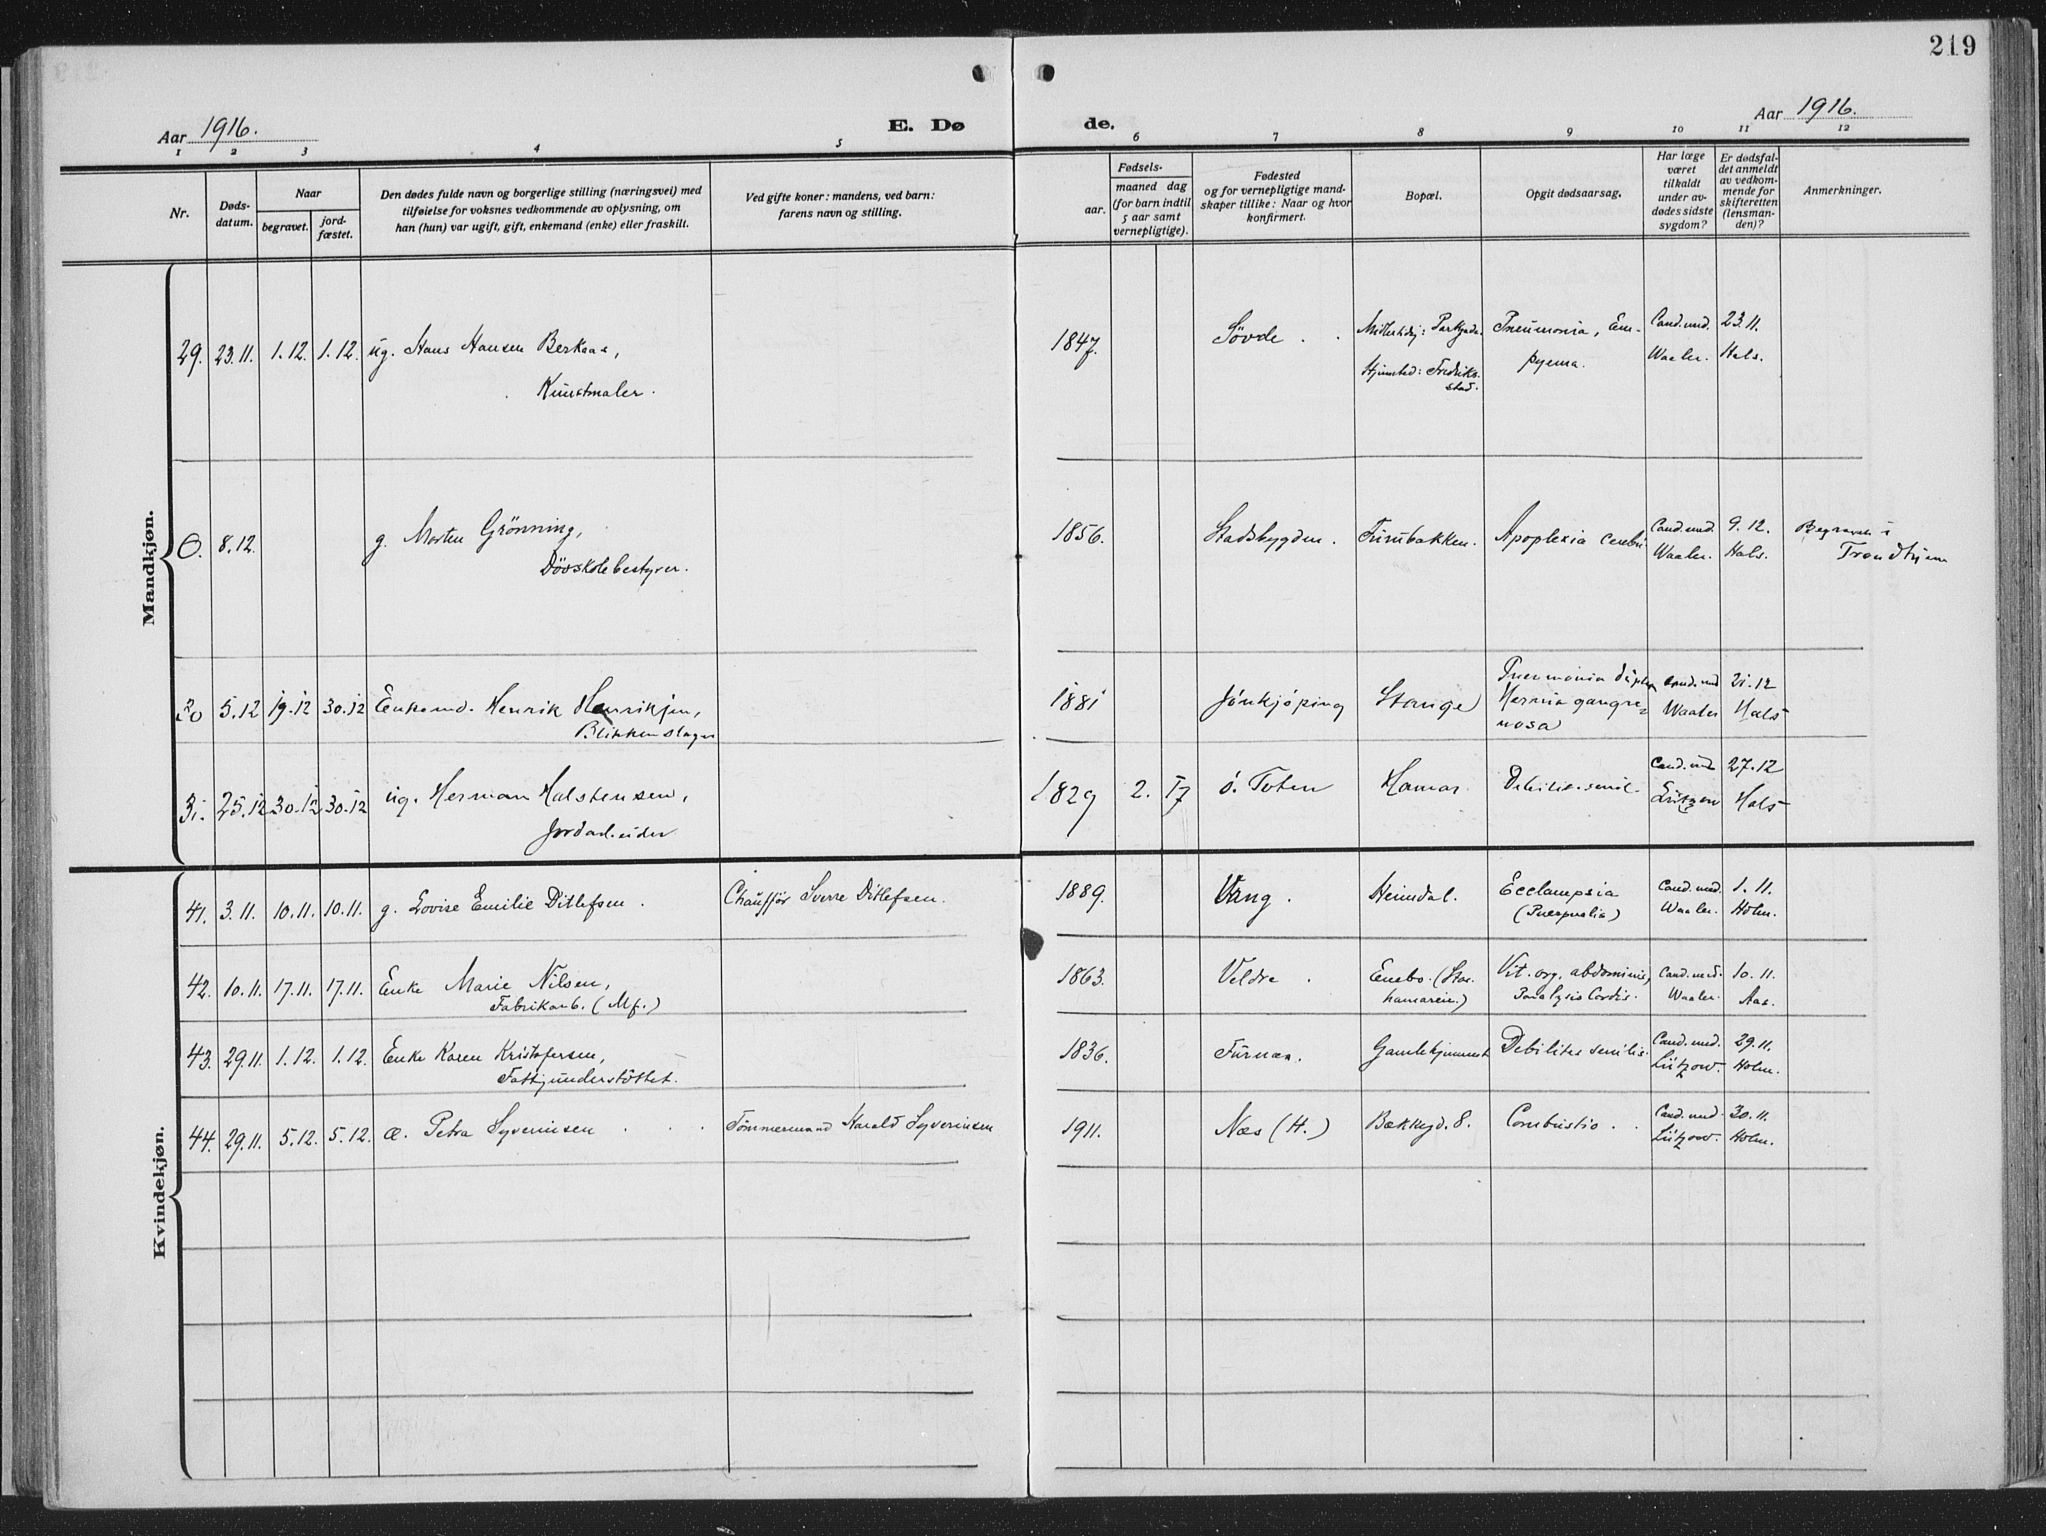 219
Aar 1916.
E. Dø
de.
Aar 1916.
1 2 3 4 5 6 7 8 9 10 11 12
Nr.
Døds-
datum.
Naar
begravet.
jord-
fæstet.
Den dødes fulde navn og borgerlige stilling (næringsvei) med
tilføielse for voksnes vedkommende av oplysning, om
han (hun) var ugift, gift, enkemand (enke) eller fraskilt.
Ved gifte koner: mandens, ved barn:
farens navn og stilling.
Fødsels-
aar.
maaned dag
(for barn indtil
5 aar samt
vernepligtige).
Fødested
og for vernepligtige mand-
skaper tillike: Naar og hvor
konfirmert.
Bopæl.
Opgit dødsaarsag.
Har læge
været
tilkaldt
under av-
dødes sidste
sygdom?
Er dødsfal-
det anmeldt
av vedkom-
mende for
skifteretten
(lensman-
den)?
Anmerkninger.
Mandkjøn.
29. 23.11. 1.12. 1.12. ug. Hans Hansen Berkaas,
Kunstmaler.
1847. Søvde
Midlertidig: Parkgade.
Hjemsted: Fredriks-
stad.
Pneumonia, Em-
pyema.
Cand. med.
Waaler.
23.11.
Hals.
O. 8.12. g. Morten Grönning,
Døvskolebestyrer.
1856. Stadsbygden. Furubakken. Apoplexia cerebri
Cand. med.
Waaler.
9.12.
Hals.
Begravet i
Trondhjem
30 5.12 19.12 30.12 Enkemd. Henrik Henriksen,
Blikkenslager
1881 Jönkjöping Stange
Pneumonia duplex
Hernia gangre-
nosa
Cand. med
Waaler
21.12
Hals
31. 25.12 30.12 30.12 ug. Herman Halstensen,
Jordarbeider
1829 2. 17 ö. Toten Hamar. Debilit. senil.
Cand. med
Lützow
27.12
Hals
Kvindekjøn.
41. 3.11. 10.11. 10.11. g. Lovise Emilie Ditlefsen. Chauffør Sverre Ditlefsen.
1889. Vang. Heimdal. Ecclampsia
(Puerperalis)
Cand. med.
Waaler.
1.11.
Holm.
42. 10.11. 17.11. 17.11. Enke Marie Nilsen,
Fabrikarb. (Mf.)
1863. Veldre. Enebo. (Stor-
hamareie.)
Vit. org. abdominis,
Paralysis Cordis.
Cand. med.
Waaler.
10.11.
Aas.
43. 29.11. 1.12. 1.12. Enke Karen Kristofersen,
Fattigunderstöttet.
1836. Furnes. Gamlehjemmet Debilitas senilis.
Cand. med.
Lützow.
29.11.
Holm.
44. 29.11. 5.12. 5.12. æ. Petra Syverinsen Tömmermand Harald Syverinsen
1911. Næs (H.) Bækkegd. 8. Combustio.
Cand. med.
Lützow.
30.11.
Holm.